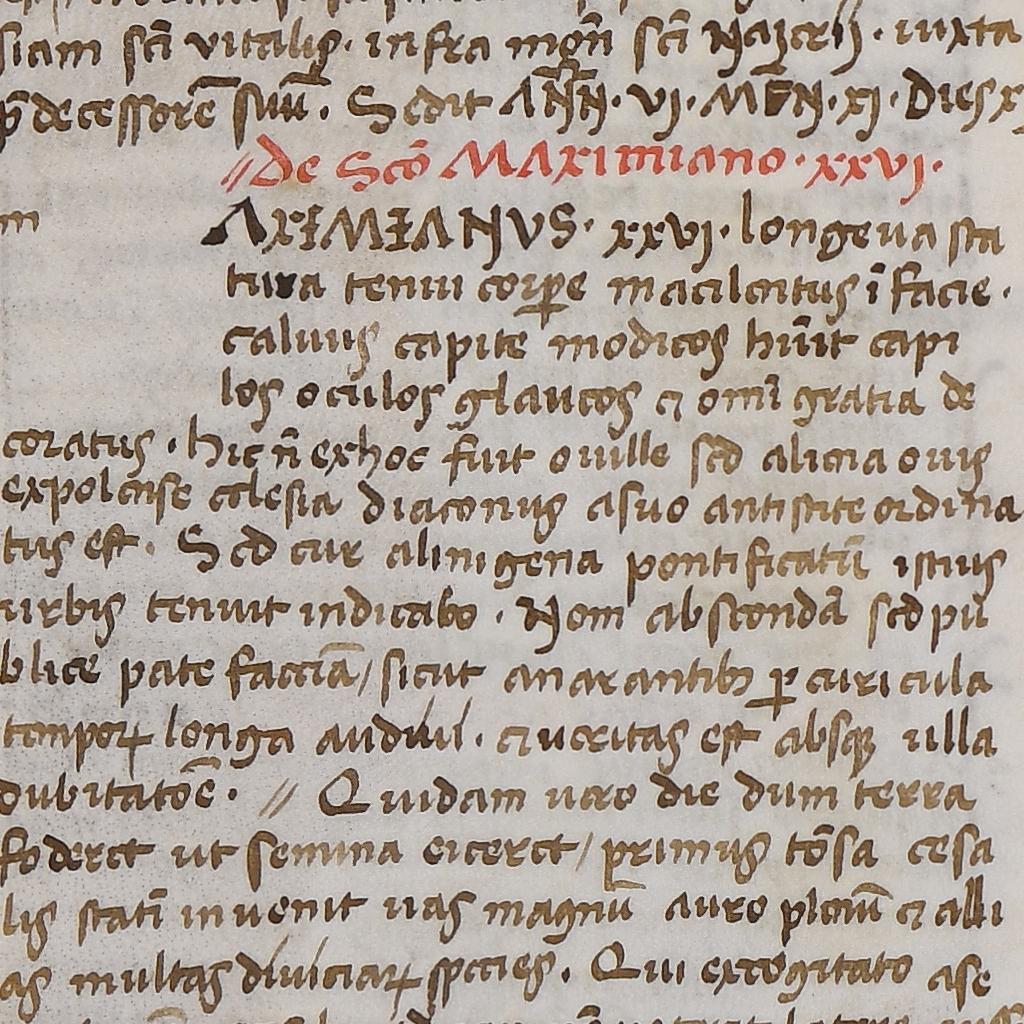 siam scī vitalis. infra moñ scī Nazarii. iuxta
p̄decessorē suū. Sedit ANN̄. VI. MĒN. XI. Dies x
De Scō Maximiano. xxvi.
m
AXIMIANVS. xxvi. longeua sta
tura tenui corpe macilentus ī facie.
caluus capite modicos hūit capi
los oculos glaucos & omī gratia de
coratus. hic ñ exhoc fuit ouille sed aliena ouis
expolense eclesia diaconus asuo antistite ordina
tus est. Sed cur alinigena pontificatū istius
urbis tenuit indicabo. Non abscondā sed pu
blice pate facciā/sicut anarantibus p curicula
temporꝝ longa audiui. & ueritas est absqꝫ ulla
dubitatōe. // Quidam uero die dum terra
foderet ut semina eiceret/primus tōsa cesa
lis statī inuenit uas magnū auro plenū & alli
as multas diuiciaꝝ species. Qui excogitato ase